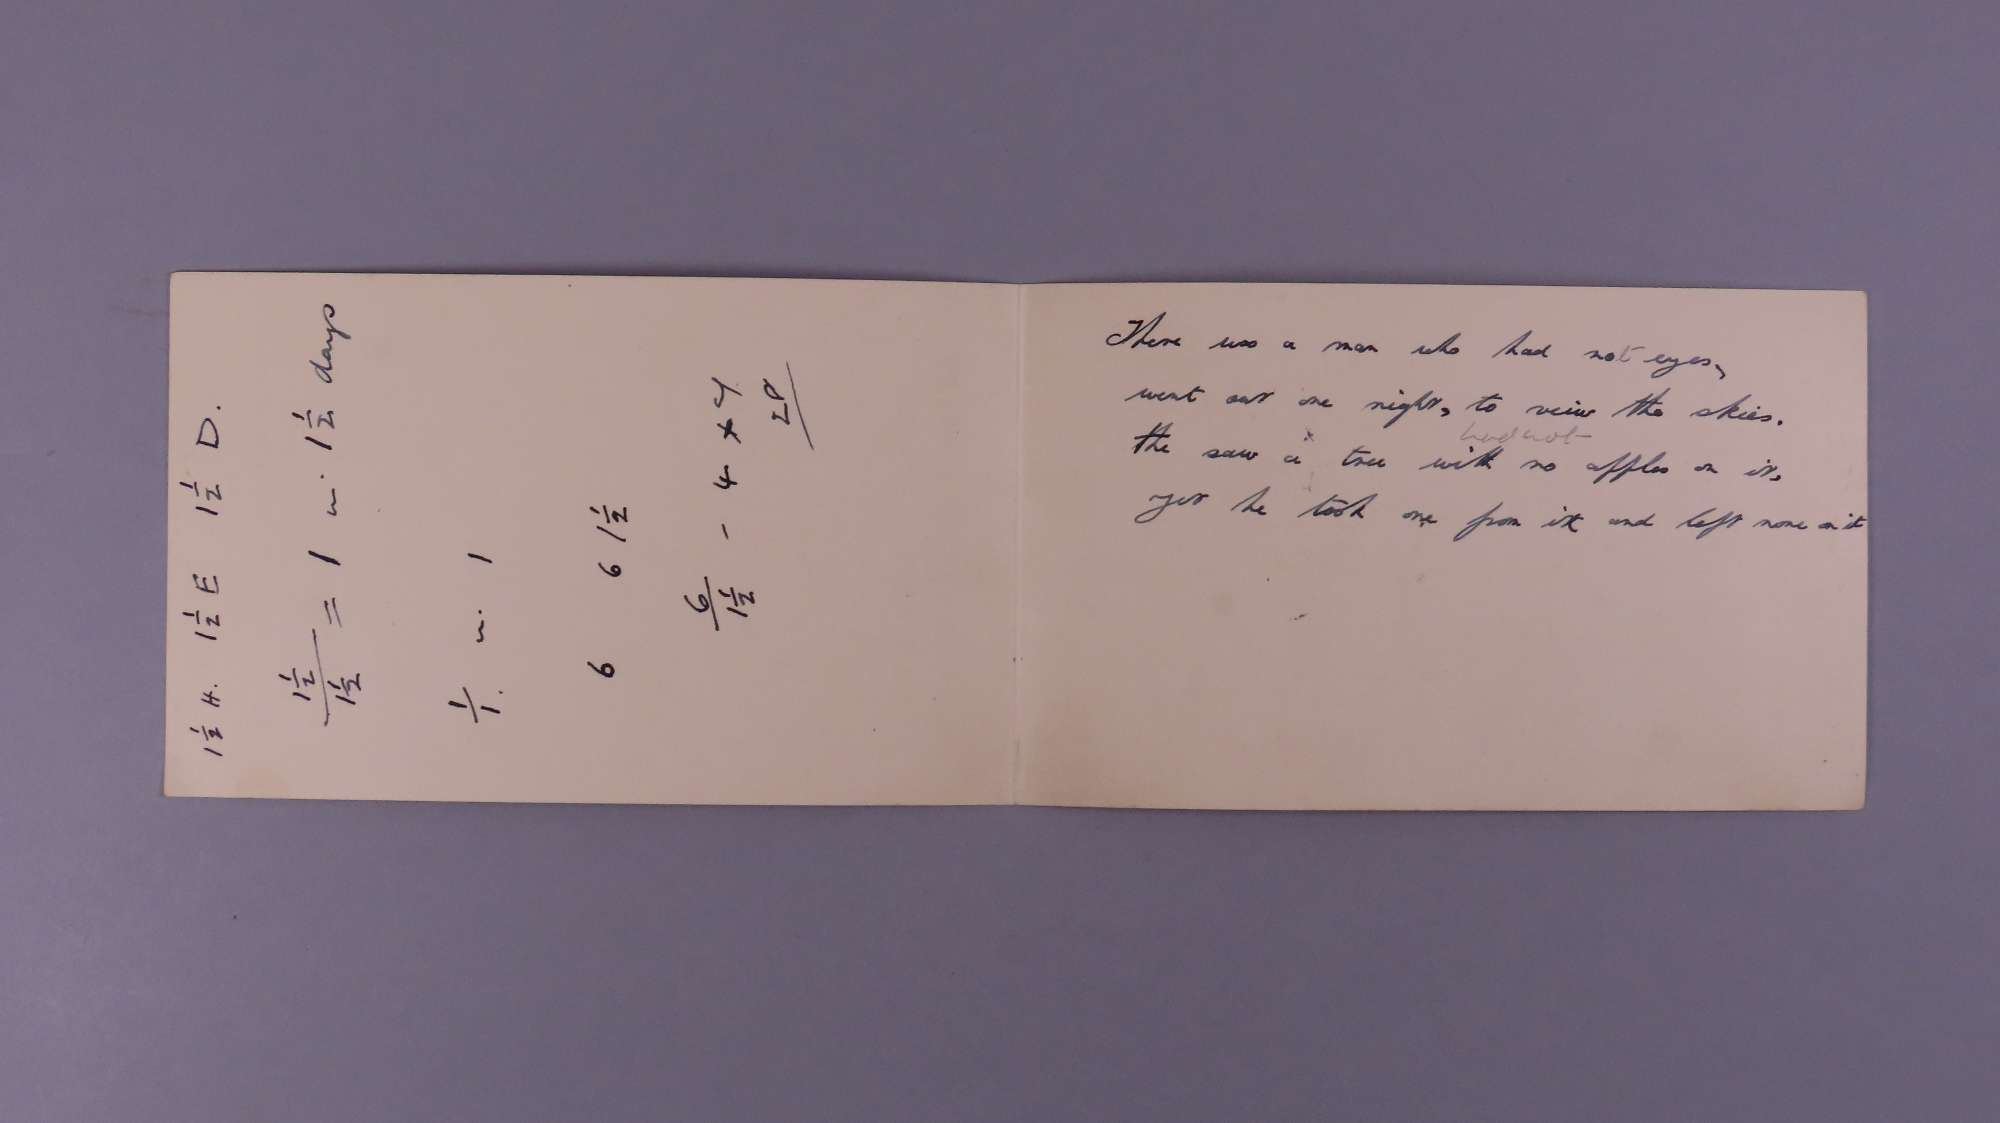 1½ H. 1½ E 1½ D.
1½/1½ = 1 in 1½ days
1/1. in 1
6 6 1½
6/1½ - 4 x 4
There was a man who had not eyes,
went out one night, to veiw the skies.
had not
the saw a tree with no apples on it,
yet he took one from it and left none on it